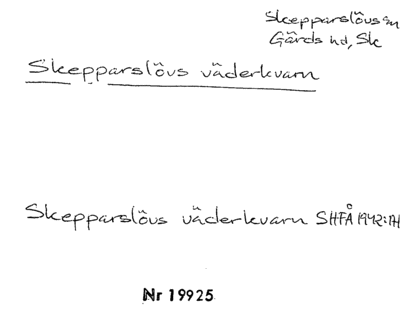 Skepparslövs sn
Gärds hd, Sk
Skepparslövs väderkvarn
Skepparslövs väderkvarn SHFÅ 1942:
Nr 19925